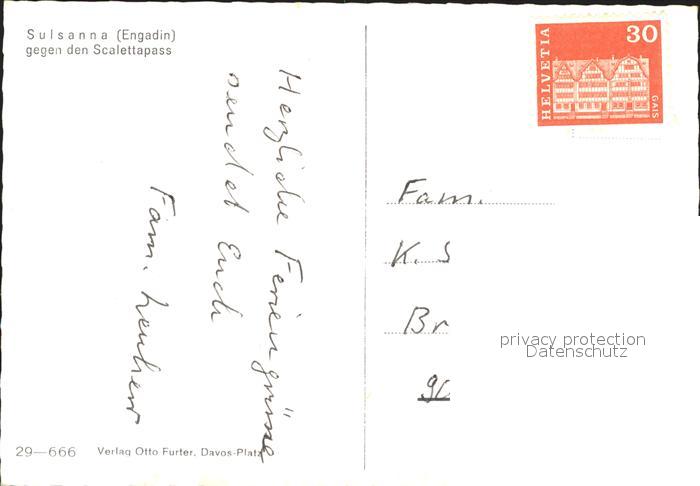 Sulsanna (Engadin)
gegen den Scalettapass
Herzliche Feriengrüsse
sendet Euch
Fam.
HELVETIA
30
GAIS
Fam.
K. S
Br
privacy protection
Datenschutz
29—666 Verlag Otto Furter, Davos-Platz